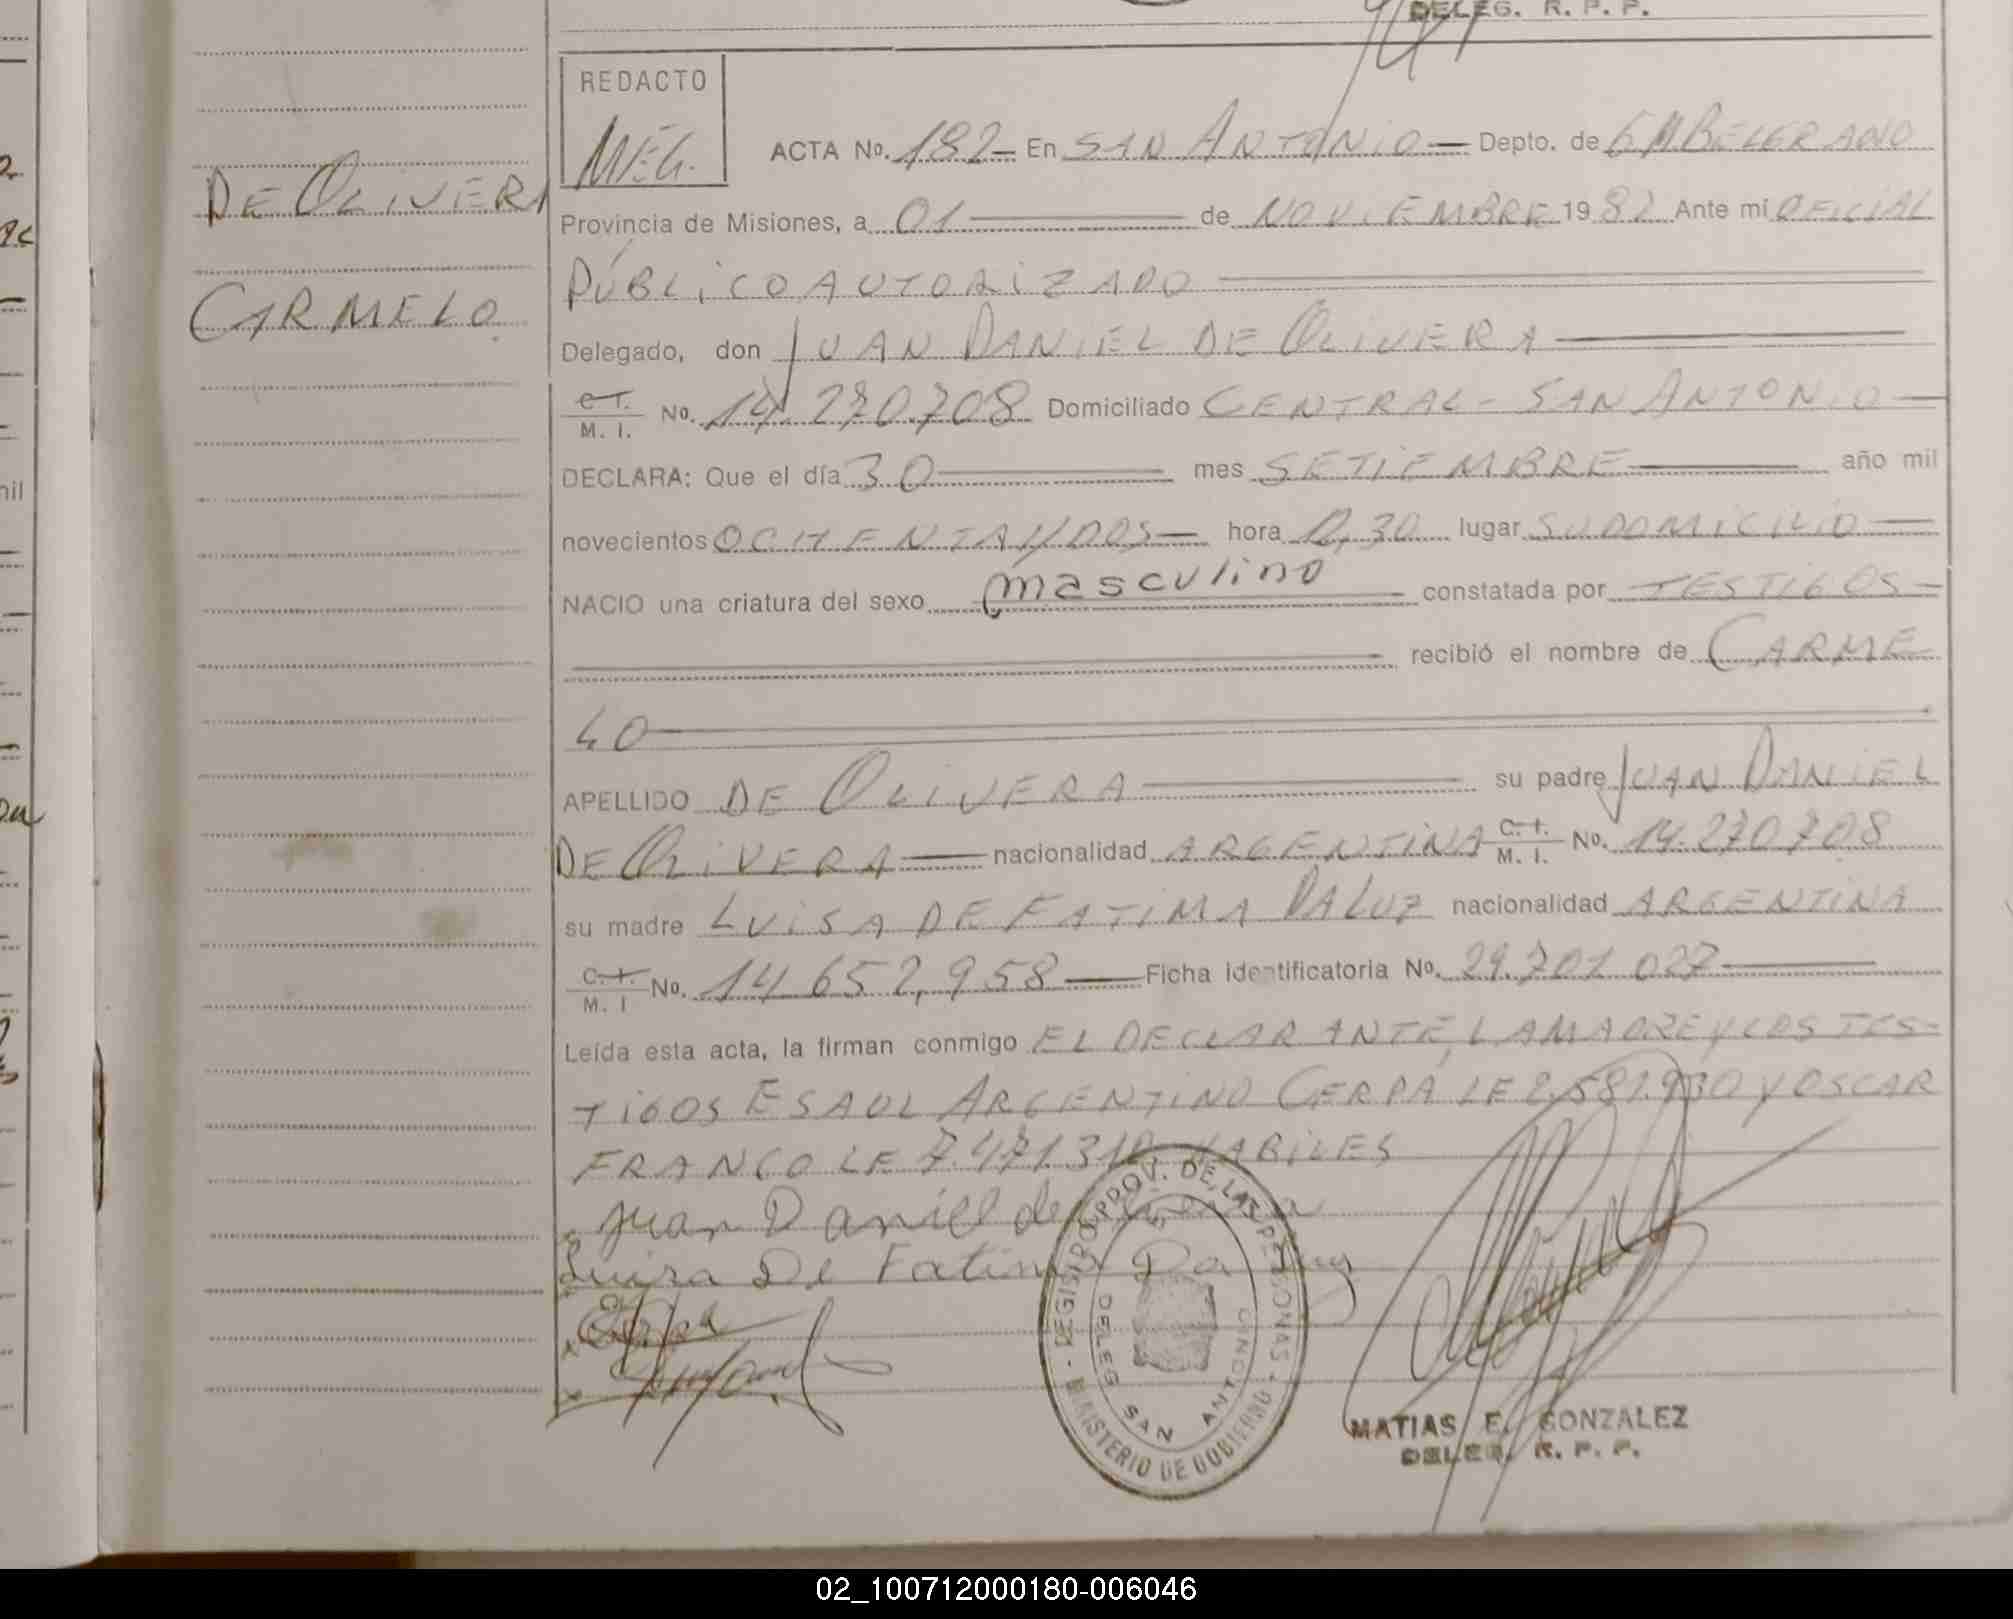 DELEG. R. P. P.
REDACTO
MEG.
ACTA No. 182 En SAN ANTONIO Depto. de GM BELGRANO
DE OLIVERA
Provincia de Misiones, a 01 de NOVIEMBRE 1982 Ante mí OFICIAL
PÚBLICO AUTORIZADO
CARMELO
Delegado, don JUAN DANIEL DE OLIVERA
C.I. M. I. No. 14.270.708 Domiciliado CENTRAL - SAN ANTONIO
DECLARA: Que el día 30 mes SETIEMBRE año mil
novecientos OCHENTA Y DOS hora 0,30 lugar SU DOMICILIO
NACIO una criatura del sexo masculino constatada por TESTIGOS
recibió el nombre de CARME
LO
APELLIDO DE OLIVERA su padre JUAN DANIEL
DE OLIVERA nacionalidad ARGENTINA C.I. M. I. No. 14.270708
su madre LUISA DE FATIMA DA LUZ nacionalidad ARGENTINA
C.I. M. I No. 14 652,958 Ficha identificatoria No. 29.701 027
Leída esta acta, la firman conmigo EL DECLARANTE, LA MADRE Y LOS TES-
TIGOS ESAUL ARGENTINO CERPA LE 2.581.930 Y OSCAR
FRANCO LE 7.471.310 HABILES
Juan Daniel de Olivera
Luisa De Fatima Da Luz
REGISTRO PROV. DE LAS PERSONAS - MINISTERIO DE GOBIERNO
DELEG SAN ANTONIO
MATIAS E. GONZALEZ
DELEG. R. P. P.
02_100712000180-006046